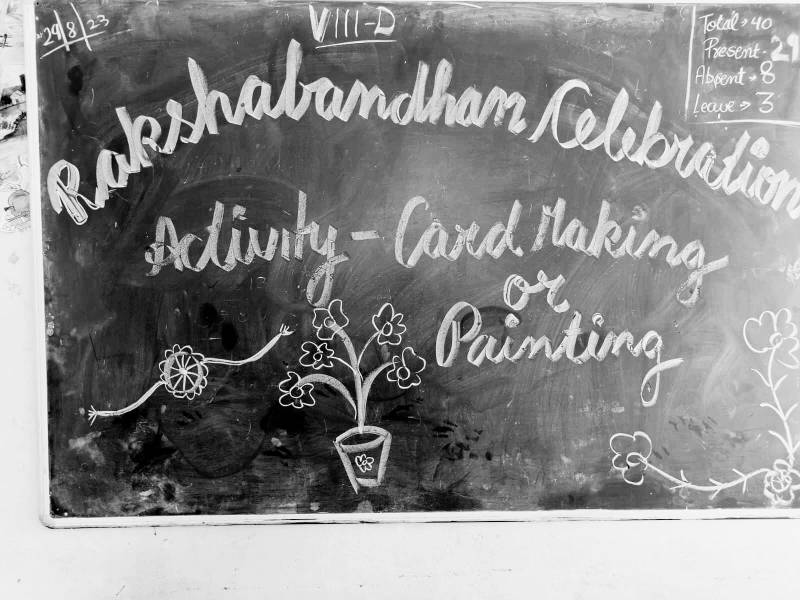 29/8/23
VIII-D
Total → 40
Present - 29
Absent → 8
Leave → 3
Rakshabandhan Celebration
Activity - Card Making
or
Painting